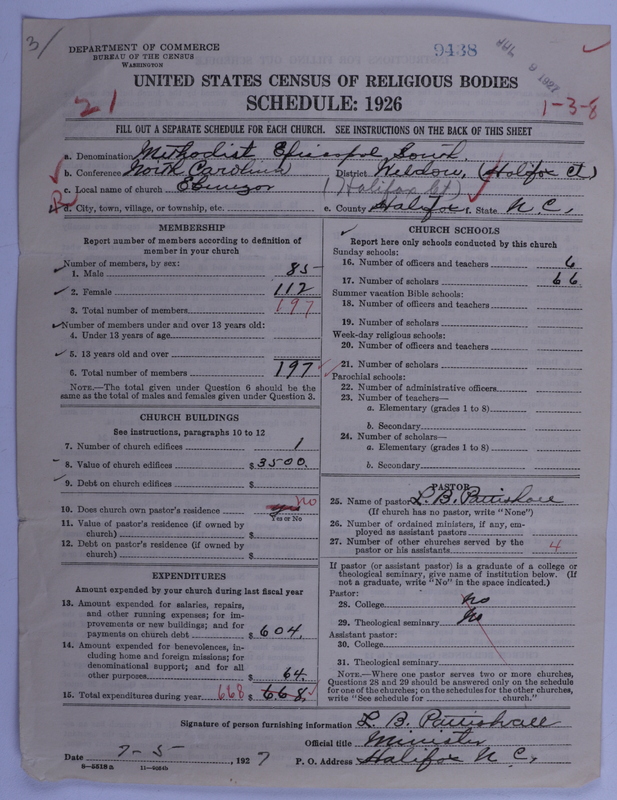 3/
DEPARTMENT OF COMMERCE
BUREAU OF THE CENSUS
WASHINGTON
9438
UNITED STATES CENSUS OF RELIGIOUS BODIES
SCHEDULE: 1926
21
1-3-8
FILL OUT A SEPARATE SCHEDULE FOR EACH CHURCH. SEE INSTRUCTIONS ON THE BACK OF THIS SHEET
a. Denomination Methodist Episcopal, South.
b. Conference North Carolina District Weldon, (Halifax Ct)
c. Local name of church Ebenezer (Halifax Ct)
d. City, town, village, or township, etc. e. County Halifax f. State N.C.,
MEMBERSHIP
Report number of members according to definition of
member in your church
Number of members, by sex:
1. Male 85
2. Female 112
3. Total number of members 197
Number of members under and over 13 years old:
4. Under 13 years of age
5. 13 years old and over
6. Total number of members 197
NOTE.—The total given under Question 6 should be the
same as the total of males and females given under Question 3.
CHURCH BUILDINGS
See instructions, paragraphs 10 to 12
7. Number of church edifices 1
8. Value of church edifices $ 3500.
9. Debt on church edifices $
10. Does church own pastor's residence yes no
Yes or No
11. Value of pastor's residence (if owned by
church) $
12. Debt on pastor's residence (if owned by
church) $
EXPENDITURES
Amount expended by your church during last fiscal year
13. Amount expended for salaries, repairs,
and other running expenses; for im-
provements or new buildings; and for
payments on church debt $ 604.
14. Amount expended for benevolences, in-
cluding home and foreign missions; for
denominational support; and for all
other purposes $ 64.
15. Total expenditures during year 668 $ 668.
CHURCH SCHOOLS
Report here only schools conducted by this church
Sunday schools:
16. Number of officers and teachers 6
17. Number of scholars 66
Summer vacation Bible schools:
18. Number of officers and teachers
19. Number of scholars
Week-day religious schools:
20. Number of officers and teachers
21. Number of scholars
Parochial schools:
22. Number of administrative officers
23. Number of teachers—
a. Elementary (grades 1 to 8)
b. Secondary
24. Number of scholars—
a. Elementary (grades 1 to 8)
b. Secondary
PASTOR
25. Name of pastor L. B. Pattishall
(If church has no pastor, write "None")
26. Number of ordained ministers, if any, em-
ployed as assistant pastors
27. Number of other churches served by the
pastor or his assistants 4
If pastor (or assistant pastor) is a graduate of a college or
theological seminary, give name of institution below. (If
not a graduate, write "No" in the space indicated.)
Pastor:
28. College No
29. Theological seminary No
Assistant pastor:
30. College
31. Theological seminary
NOTE.—Where one pastor serves two or more churches,
Questions 28 and 29 should be answered only on the schedule
for one of the churches; on the schedules for the other churches,
write "See schedule for church."
Signature of person furnishing information L. B. Pattishall
Official title Minister
Date 7-5-, 1927 P. O. Address Halifax N.C.,
8—5518a 11—9264b